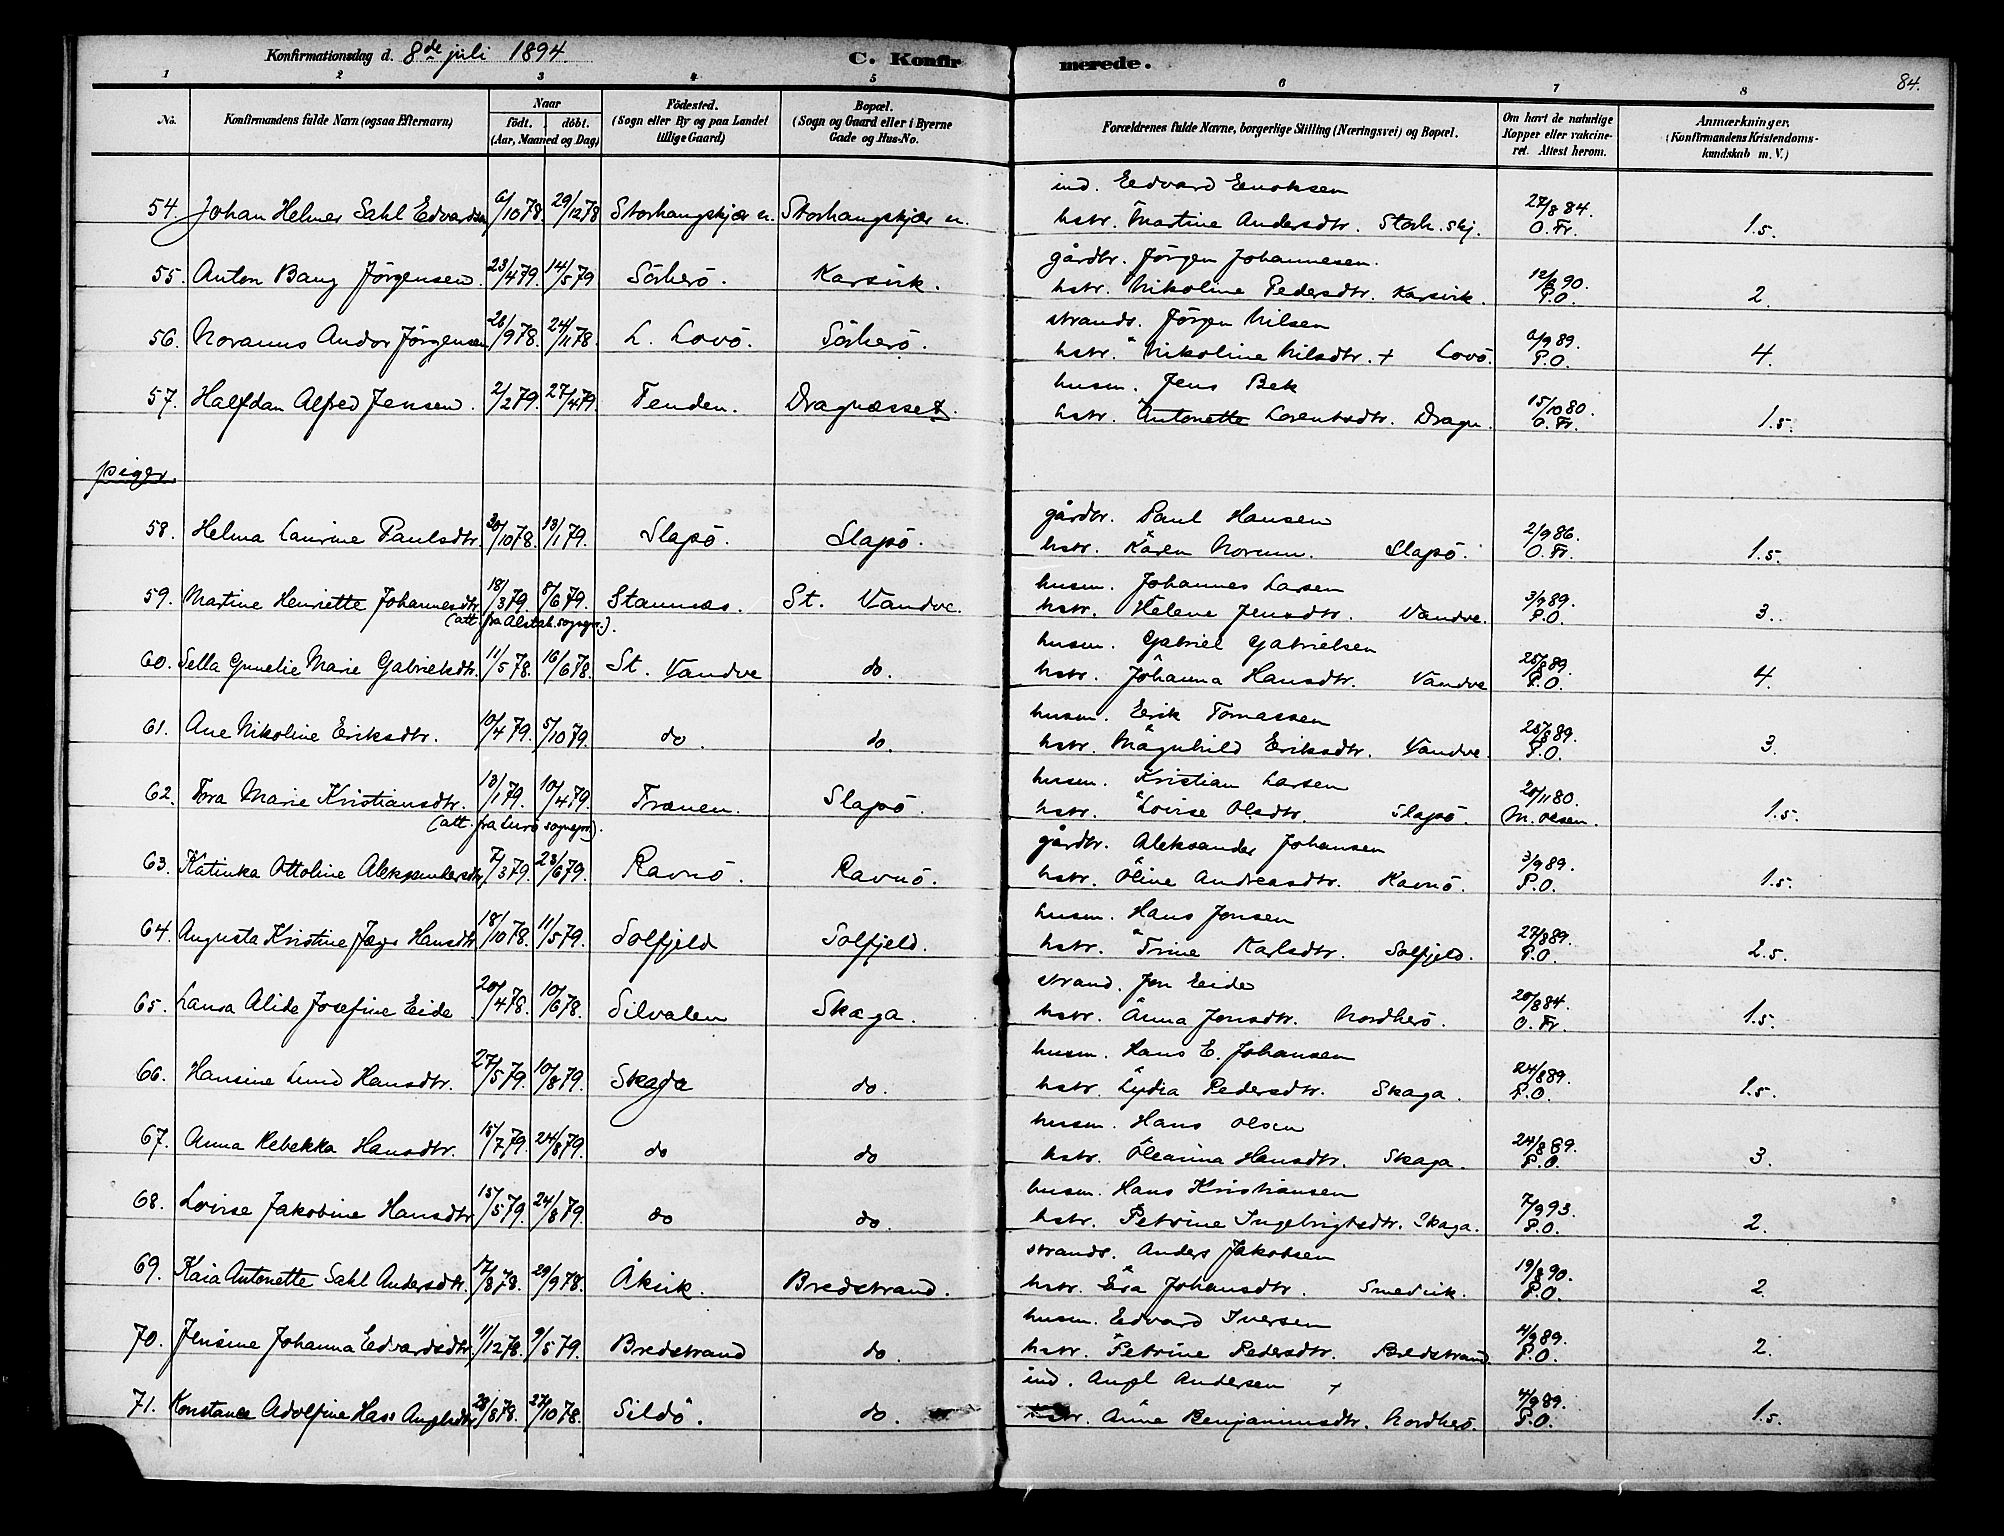 Konfirmationsdag d. 8de juli 1894.
C. Konfirmerede.
84.
1 2 3 4 5 6 7 8
No.
Konfirmandens fulde Navn (ogsaa Efternavn)
Naar
födt. döbt.
(Aar, Maaned og Dag)
Födested.
(Sogn eller By og paa Landet
tillige Gaard)
Bopæl.
(Sogn og Gaard eller i Byerne
Gade og Hus-No.
Forældrenes fulde Navne, borgerlige Stilling (Næringsvei) og Bopæl.
Om havt de naturlige
Kopper eller vakcine-
ret. Attest herom.
Anmærkninger.
(Konfirmandens Kristendoms-
kundskab m. V.)
ind. Edvard Enoksen
54. Johan Helmer Sahl Edvardsen 6/10 78. 29/12 78 Storhaugskjær n. Storhaugskjær n. hstr. Martine Andersdtr. Storh. skj. 27/8 84. O. Fr. 1.5.
gårdbr. Jörgen Johannesen.
55. Anton Bang Jörgensen 23/4 79. 14/5 79 Sörherö. Karsvik. hstr. Nikoline Pedersdtr. Karsvik. 12/8 90. P.O. 2.
strands. Jörgen Nilsen
56. Noranus Andor Jörgensen 26/9 78. 24/11 78. L. Lovö. Sörherö. hstr. Nikoline Nilsdtr. + Lovö. 6/9 89. P.O. 4
husm. Jens Bek
57. Halfdan Alfred Jensen. 2/2 79. 27/4 79. Tenden. Dragnæsset. hstr. Antonette Lorentsdtr. Dragn. 15/10 80. O. Fr. 1.5.
piger.
gårdbr. Paul Hansen
58. Helma Laurine Paulsdtr. 30/10 78. 13/1 79. Slapö. Slapö. hstr. Karen Norum. Slapö. 2/9 86. O. Fr. 1.5.
husm. Johannes Larsen
59. Martine Henriette Johannesdtr. 18/3 79. 8/6 79. Stamnæs. St. Vandve. hstr. Helene Jensdtr. Vandve. 3/9 89. P.O. 3.
(att. fra Alstah. sogn.).
husm. Gabriel Gabrielsen
60. Sella Gunelie Marie Gabrielsdtr. 11/5 78. 16/6 78. St. Vandve do. hstr. Johanna Hansdtr. Vandve 25/8 89. P.O. 4.
husm. Erik Tomassen
61. Ane Nikoline Eriksdtr. 10/4 79. 5/10 79. do. do. hstr. Magnhild Eriksdtr. Vandve. 25/8 89. P.O. 3.
husm. Kristian Larsen
62. Tora Marie Kristiansdtr. 13/1 79. 10/4 79. Trænen. Slapö. hstr. Lovise Olsdtr. Slapö. 20/11 80. M. Olsen. 1.5.
(att. fra Lurö sognepr.).
gårdbr. Aleksander Johansen
63. Katinka Ottoline Aleksandersdtr 7/3 79. 23/6 79. Ravnö. Ravnö. hstr. Oline Andreasdtr. Ravnö. 3/9 89. P.O. 1.5.
husm. Hans Jonsen
64. Augusta Kristine Jæger Hansdtr 18/10 78. 11/5 79. Solfjeld Solfjeld. hstr. Trine Karlsdtr. Solfjeld. 27/8 89. P.O. 2.5.
strand. Jon Eide
65. Laura Alide Josefine Eide 20/4 78. 10/6 78. Silvalen Skaga. hstr. Anna Jonsdtr. Nordherö. 20/8 84. O. Fr. 1.5.
husm. Hans E. Johansen
66. Hansine Lund Hansdtr. 27/5 79. 10/8 79. Skaga do. hstr. Lydia Pedersdtr. Skaga. 24/8 89. P.O. 1.5.
husm. Hans Olsen
67. Anna Rebekka Hansdtr. 15/7 79. 24/8 79. do do hstr. Oleanna Hansdtr. Skaga. 24/8 89. P.O. 3.
husm. Hans Kristiansen
68. Lovise Jakobine Hansdtr 15/5 79. 24/8 79. do do. hstr. Petrine Ingebrigtsdtr. Skaga. 7/9 93. P.O. 2.
strands. Anders Jakobsen
69. Kaia Antonette Sahl Andersdtr. 17/8 78. 29/9 78. Åkvik. Bredstrand. hstr. Johansdtr. Smedvik. 19/8 90. P.O. 2.
husm. Edvard Iversen
70. Jensine Johanna Edvardsdtr. 11/12 78. 9/5 79. Bredstrand do. hstr. Petrine Pedersdtr. Bredstrand 4/9 89. P.O. 2.
ind. Angl Andersen +
71. Konstance Adolfine Hass Anglsdtr 28/8 78. 27/10 78. Sildö. do. hstr. Anne Benjaminsdtr. Nordherö. 4/9 89. P.O. 1.5.